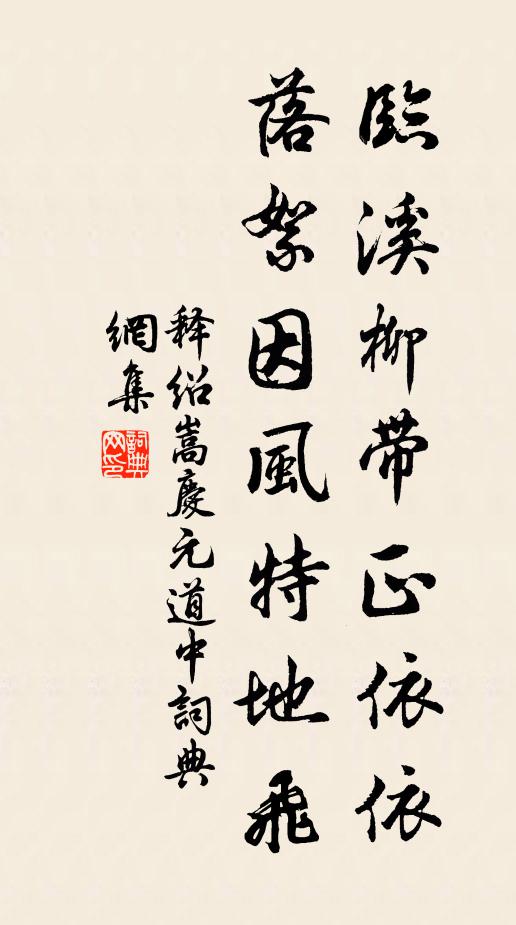 臨溪柳帶正依依
落絮因風特地飛
释绍嵩慶元道中詞典
網集
詞典
网印